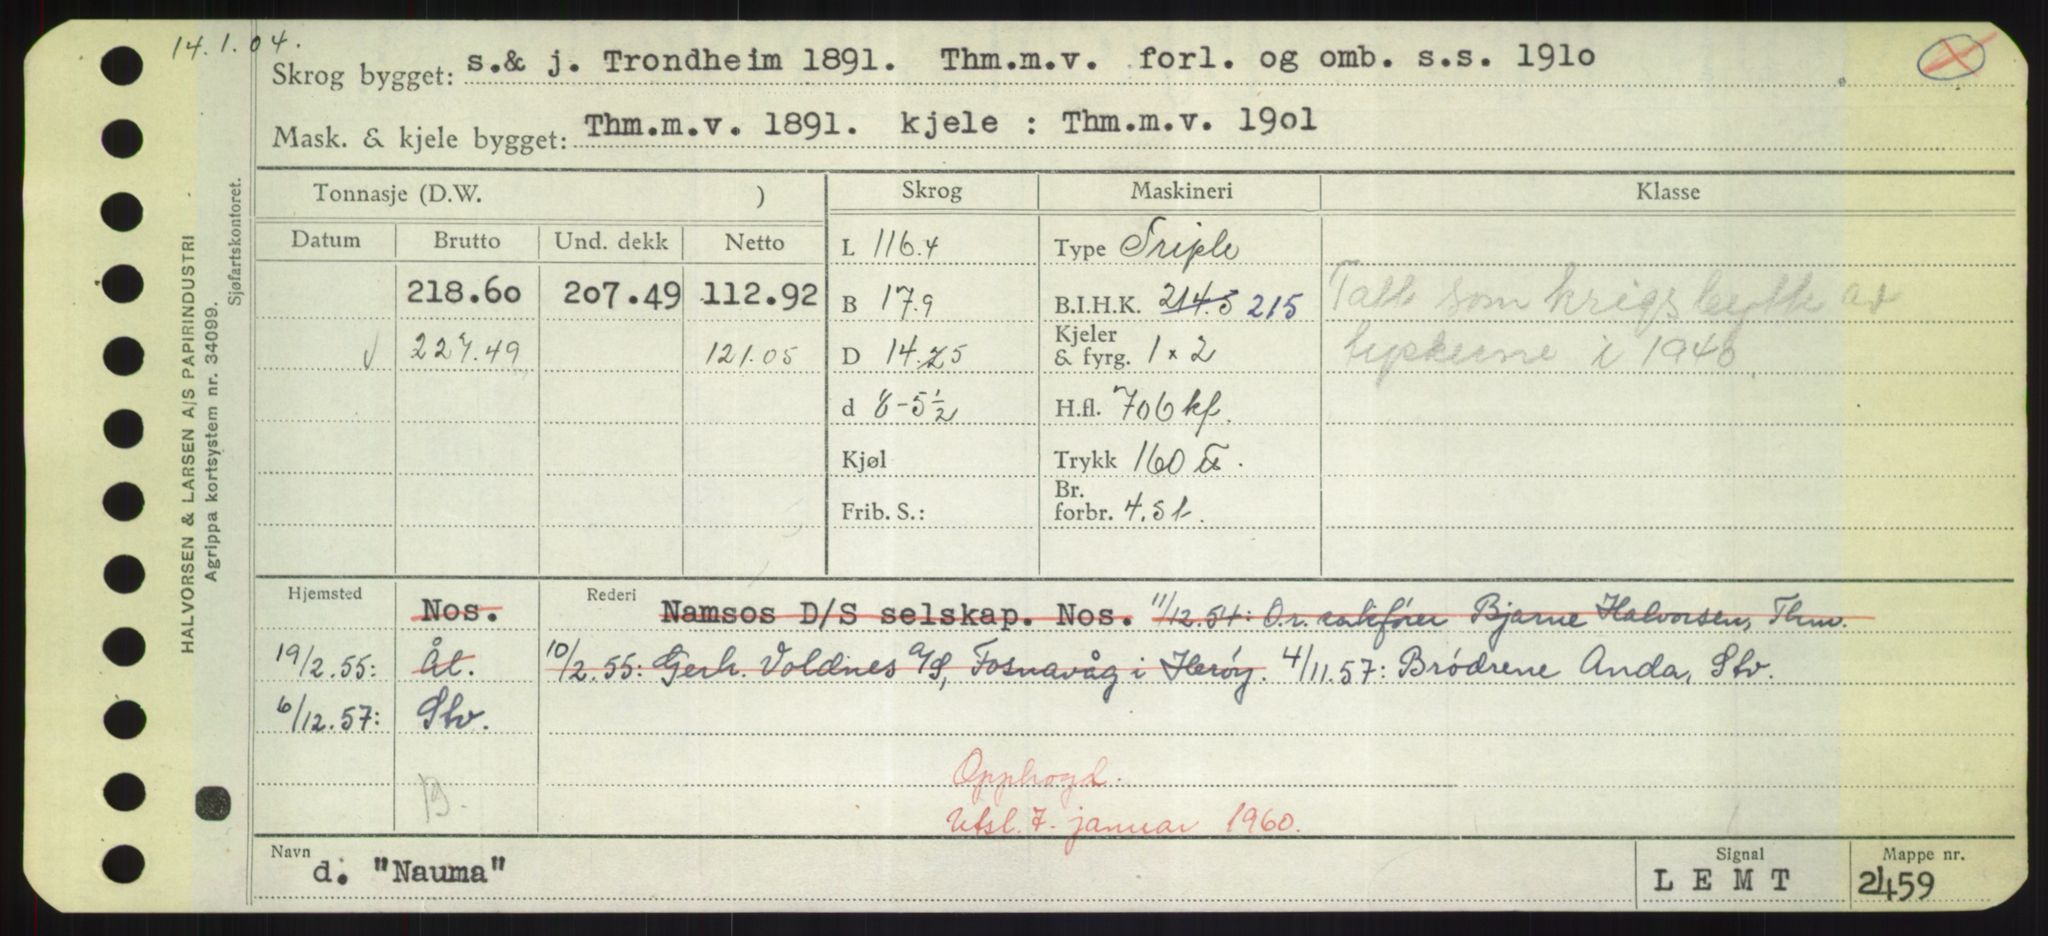 14.1.04.
Skrog bygget: s.& j. Trondheim 1891. Thm.m.v. forl. og omb. s.s. 1910
Mask. & kjele bygget: Thm.m.v. 1891. kjele : Thm.m.v. 1901
HALVORSEN & LARSEN A/S PAPIRINDUSTRI
Agrippa kortsystem nr. 34099.
Sjøfartskontoret.
Tonnasje (D.W. ) Skrog Maskineri Klasse
Datum Brutto Und. dekk Netto L 116.4 Type Triple
218.60 207.49 112.92 B 17.9 B.I.H.K. 214.5 215 Tatt som krigsbytte av
227.49 121.05 D 14.25 Kjeler & fyrg. 1 x 2 tyskerne i 1940.
d 8-5½ H.fl. 706 kf.
Kjøl Trykk 160
Frib. S.: Br. forbr. 4.5 t.
Hjemsted Nos. Rederi Namsos D/S selskap. Nos. 11/12.54: O.r. sakfører Bjarne Halvorsen, Thm.
19/2.55: Ål. 10/2.55: Gerh. Voldnes A/S, Fosnavåg i Herøy. 4/11.57: Brødrene Anda, Stv.
6/12.57: Stv.
Opphogd.
Utsl. 7. januar 1960.
Navn d. "Nauma" Signal L E M T Mappe nr. 2459